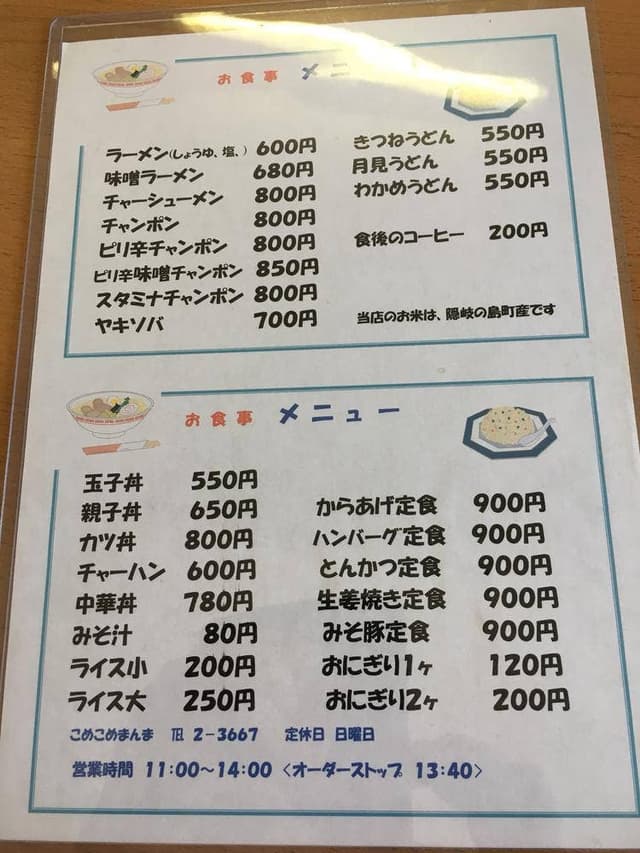 お食事 メニュー
ラーメン(しょうゆ、塩、) 600円
味噌ラーメン 680円
チャーシューメン 800円
チャンポン 800円
ピリ辛チャンポン 800円
ピリ辛味噌チャンポン 850円
スタミナチャンポン 800円
ヤキソバ 700円
きつねうどん 550円
月見うどん 550円
わかめうどん 550円
食後のコーヒー 200円
当店のお米は、隠岐の島町産です
お食事 メニュー
玉子丼 550円
親子丼 650円
カツ丼 800円
チャーハン 600円
中華丼 780円
みそ汁 80円
ライス小 200円
ライス大 250円
からあげ定食 900円
ハンバーグ定食 900円
とんかつ定食 900円
生姜焼き定食 900円
みそ豚定食 900円
おにぎり1ヶ 120円
おにぎり2ヶ 200円
こめこめまんま ℡ 2-3667 定休日 日曜日
営業時間 11:00~14:00 〈オーダーストップ 13:40〉